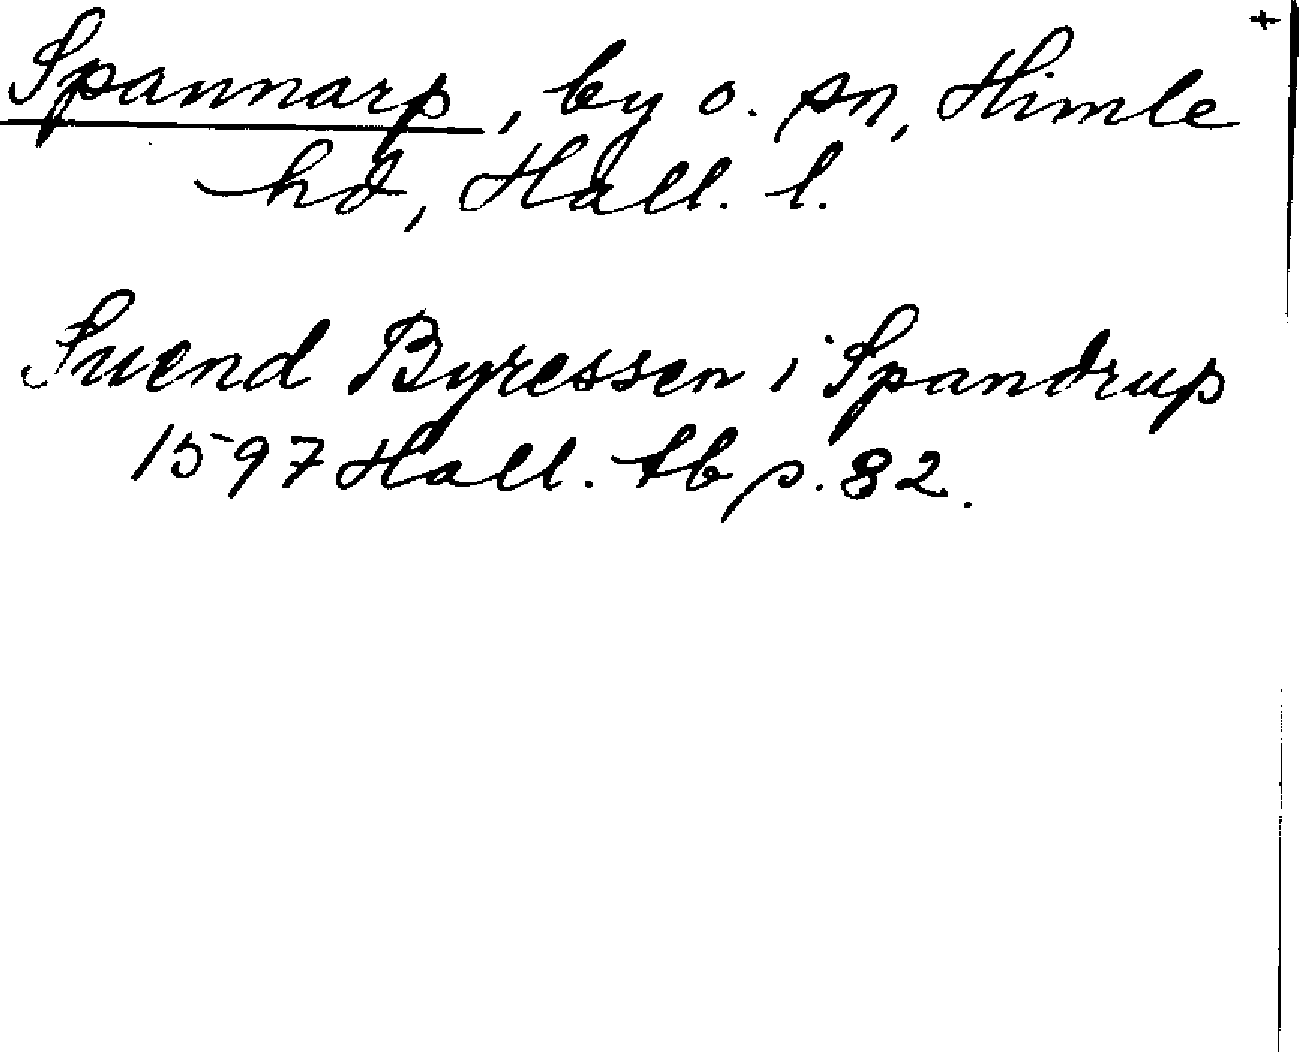 +
Spannarp, by o. sn, Himle
hd, Hall. l.
Suend Byressen i Spandrup
1597 Hall. tb p. 82.